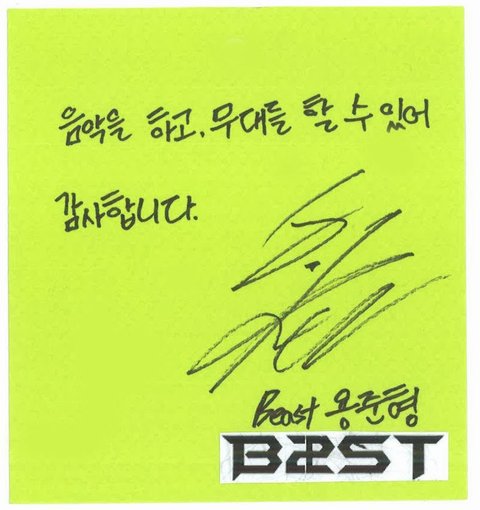 음악을 하고, 무대를 할 수 있어
감사합니다.
Beast 용준형
B2ST